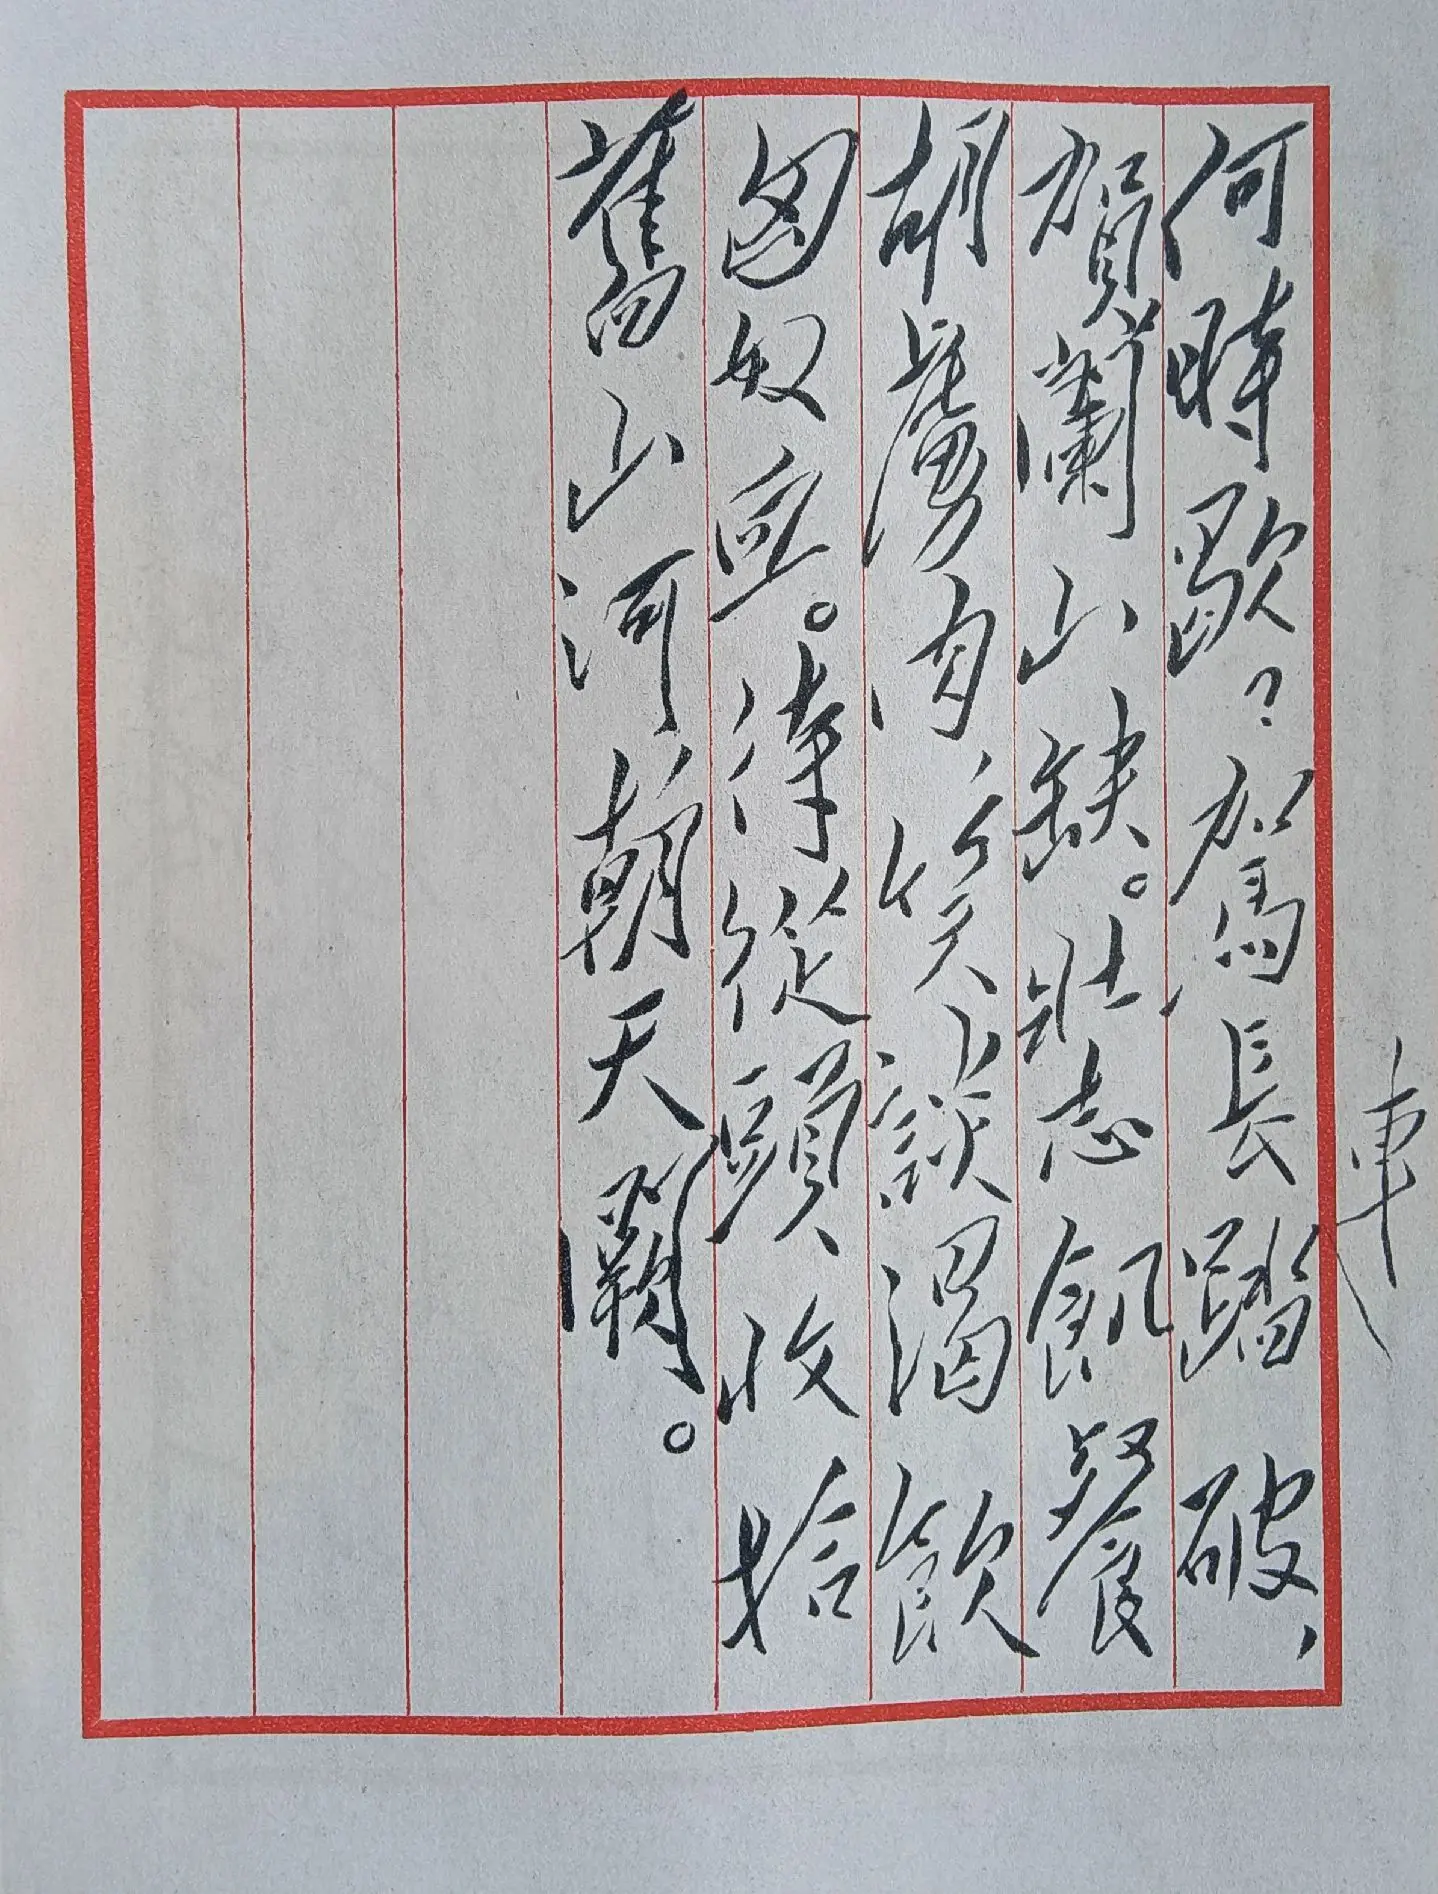 何時歇？駕長車踏破、
賀蘭山缺。壯志飢餐
胡虜肉，笑談渴飲
匈奴血。待從頭收拾
舊山河，朝天闕。